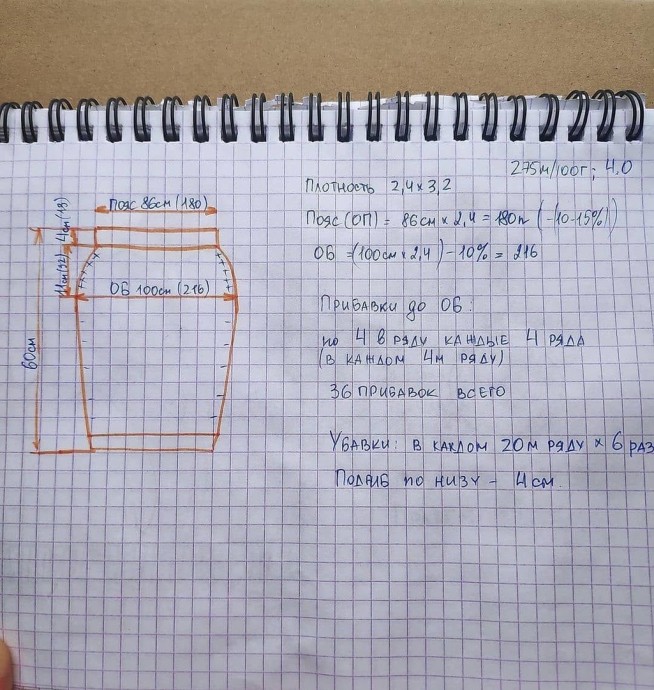 275м/100г; 4.0
Плотность 2,4 x 3,2
Пояс (ОП) = 86см x 2,4 = 180п (-(10-15%))
ОБ =(100см x 2,4) - 10% = 216
Прибавки до ОБ:
по 4 в ряду каждые 4 ряда
(в каждом 4м ряду)
36 прибавок всего
Убавки: в каждом 20м ряду x 6 раз
Подгиб по низу - 4см.
Пояс 86см (180)
4см (13)
11см(32)
ОБ 100см (216)
60см